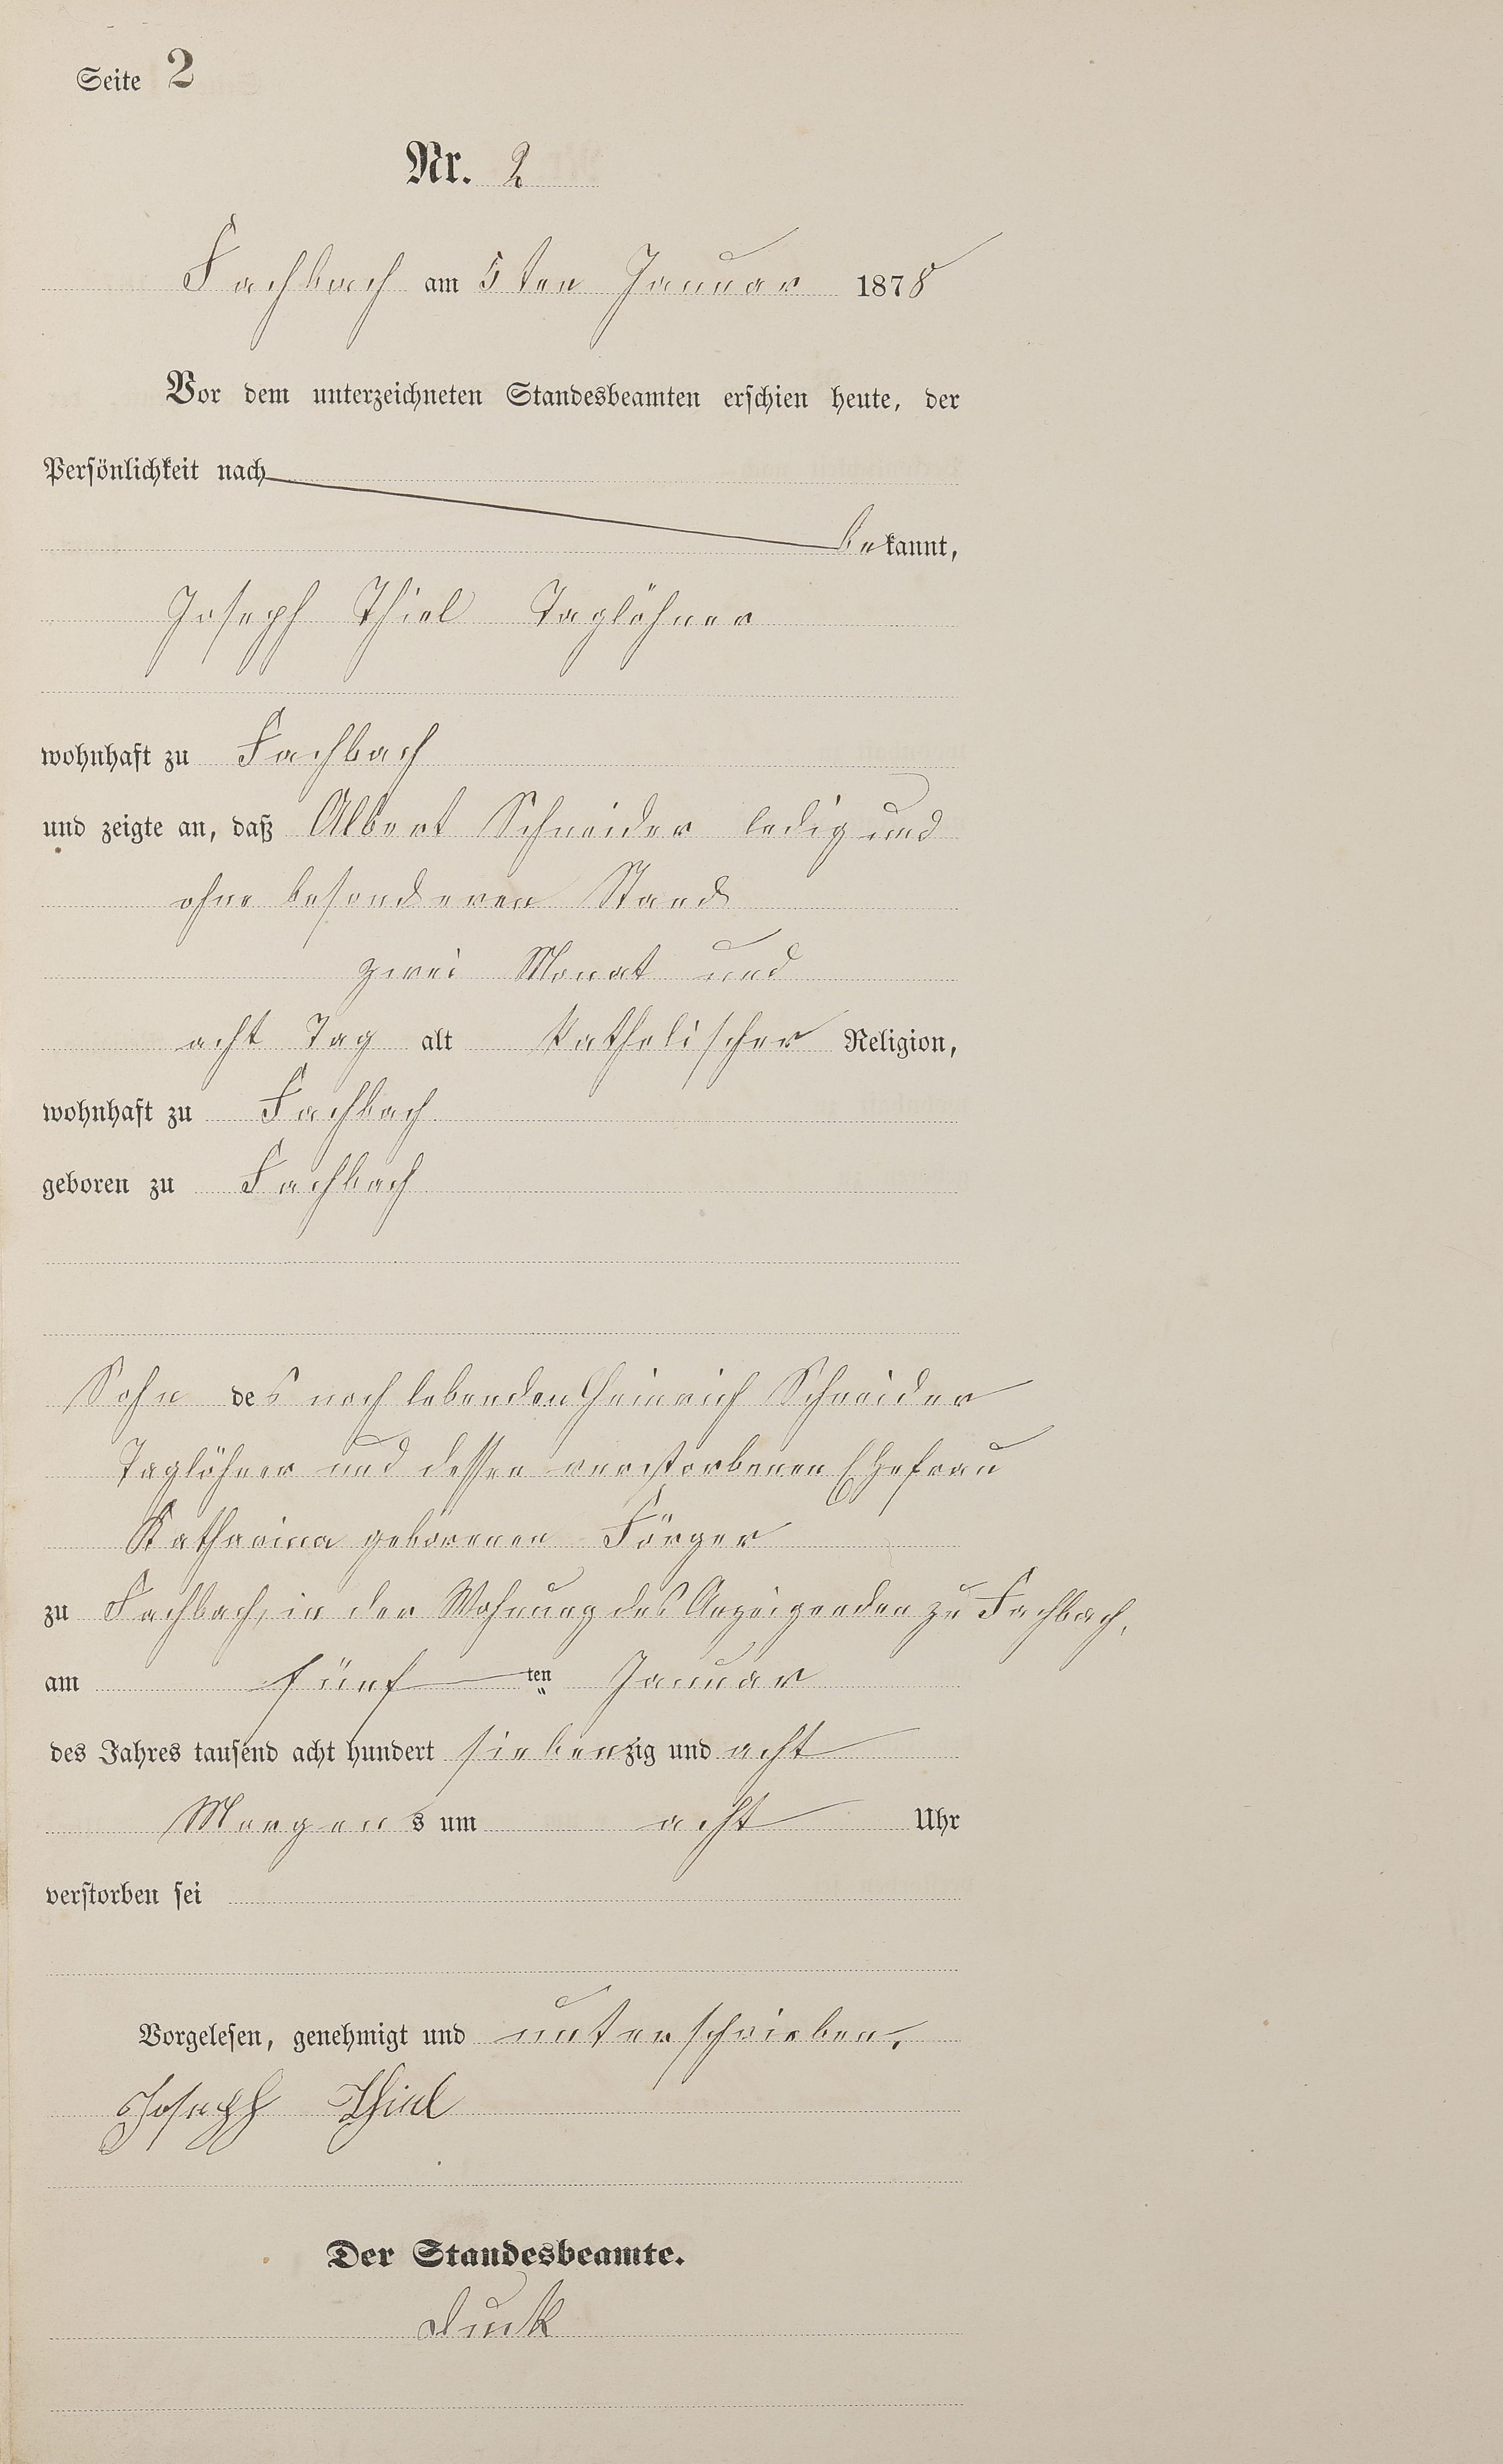 Seite 2
Nr. 2
Fachbach am 5ten Januar 1878
Vor dem unterzeichneten Standesbeamten erschien heute, der
Persönlichkeit nach
bekannt,
Joseph Thiel Taglöhner
wohnhaft zu Fachbach
und zeigte an, daß Albert Schneider ledig und
ohne besonderen Stand
zwei Monat und
acht Tag alt katholischer Religion,
wohnhaft zu Fachbach
geboren zu Fachbach
Sohn des noch lebenden Heinrich Schneider
Taglöhner und dessen verstorbenen Ehefrau
Katharina geborenen Förger
zu Fachbach, in der Wohnung des Anzeigenden zu Fachbach,
am fünf ten Januar
des Jahres tausend acht hundert siebenzig und acht
Morgens um acht Uhr
verstorben sei
Vorgelesen, genehmigt und unterschrieben.
Joseph Thiel
Der Standesbeamte.
Dunk